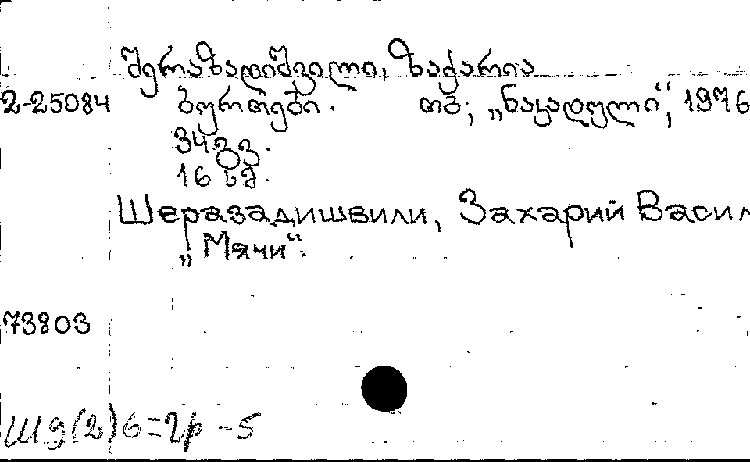 შერაზადიშვილი, ზაქარია
2-25084 ბურთები. თბ; „ნაკადული“, 1976
34გვ.
16 სმ.
Шеразадишвили, Захарий Васил
„Мячи“.
73803
Ш9(2)6=2р -5